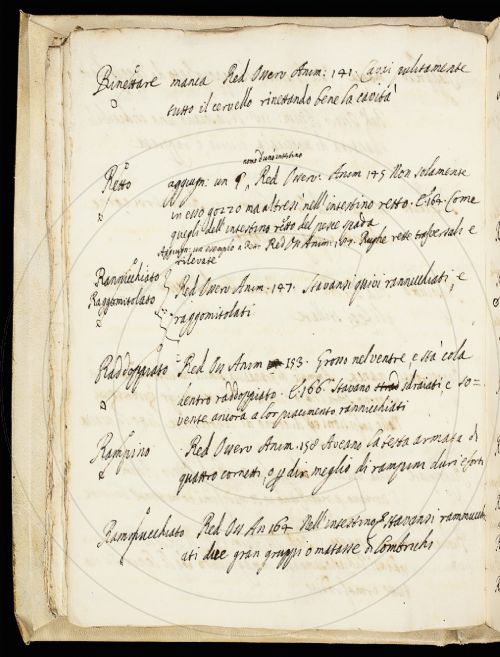 Rinettare manca Red Osserv Anim: 141 Cavai pulitamente
tutto il cervello rinettando bene la cavità
nome d'uno intestino
Retto aggiugn: un § Red Osserv: Anim 145 Non solamente
in esso gozzo ma altresì nell'intestino retto. E: 164 Come
quegli dell'intestino retto del pesce spada
Aggiugn: un esempio a Red Oss Anim: Rughe rette trasversali e
rilevate
Rannicchiato
Raggomitolato
Red Osserv Anim: 147. Stavansi quivi rannicchiati, e
raggomitolati
Raddoppiato Red Oss Anim 153. Grosso nel ventre e sta colà
dentro raddoppiato. E 166. Stavano sdraiati, e so-
vente ancora a lor piacimento rannicchiati
Rampino Red Osserv Anim. 158 Aveano la testa armata di
quattro cornetti, o per dir meglio di rampini duri e forti
Rannicchiato Red Oss An 164 Nell'intestino stavansi rannicchi
ati due gran gruppi o matasse di Lombrichi